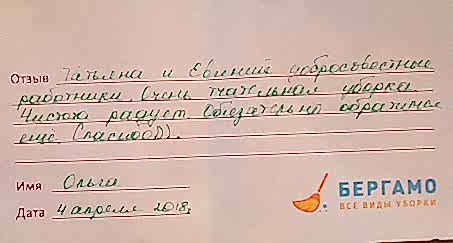 Отзыв Татьяна и Евгений добросовестные
работники. Очень тщательная уборка.
Чистота радует. Обязательно обратимся
ещё. Спасибо)).
Имя Ольга
Дата 4 апреля 2018г
БЕРГАМО
ВСЕ ВИДЫ УБОРКИ